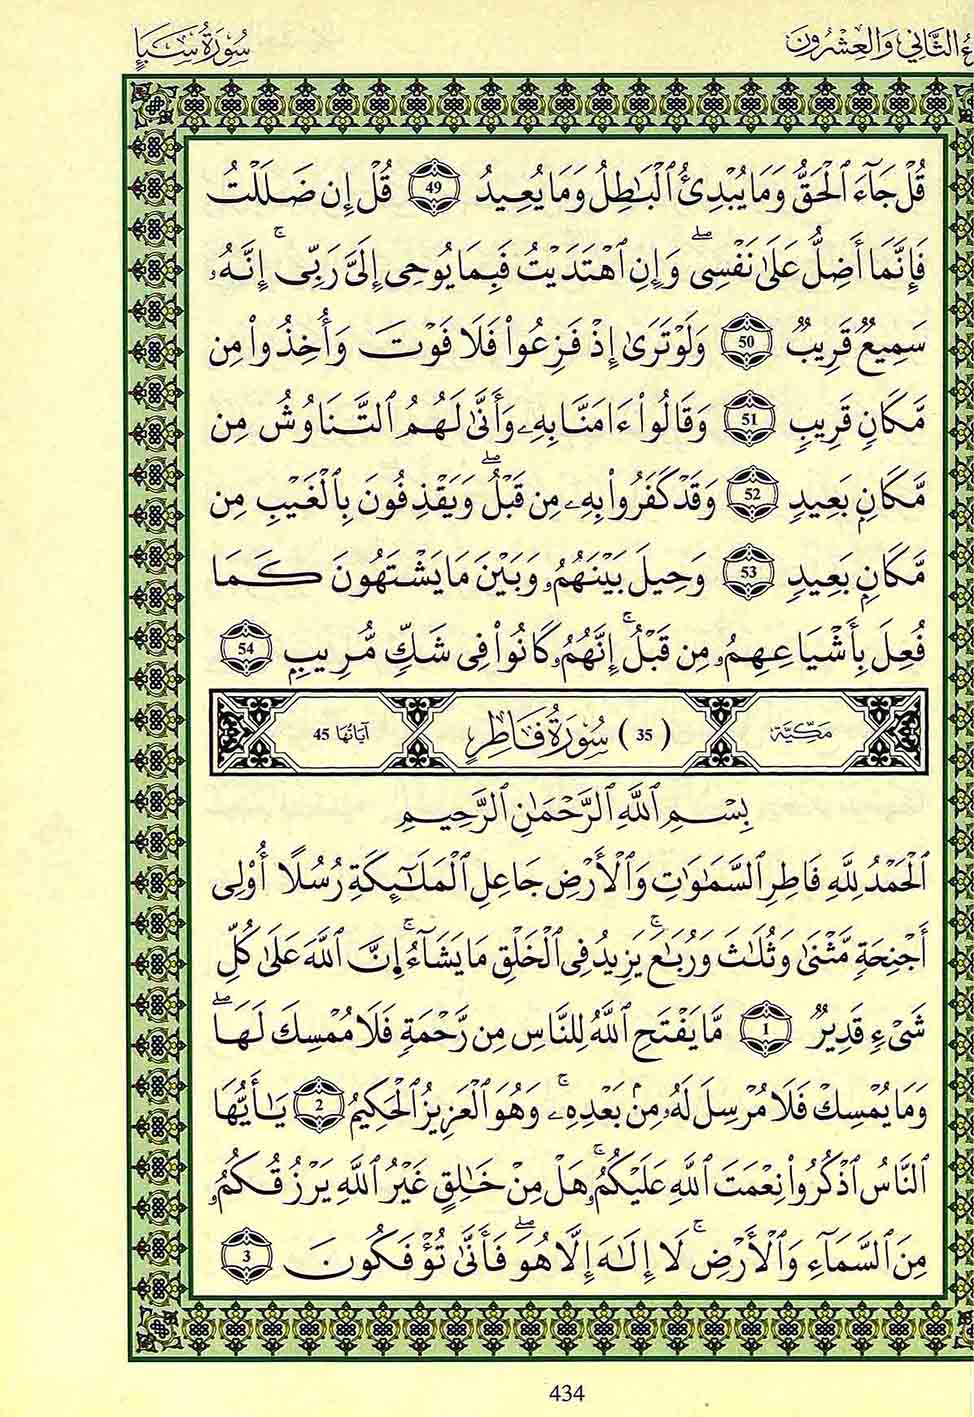 ءُ الثَّانِي وَالْعِشْرُونَ
سُورَةُ سَبَإٍ
قُلْ جَآءَ ٱلْحَقُّ وَمَا يُبْدِئُ ٱلْبَٰطِلُ وَمَا يُعِيدُ 49 قُلْ إِن ضَلَلْتُ
فَإِنَّمَآ أَضِلُّ عَلَىٰ نَفْسِى ۖ وَإِنِ ٱهْتَدَيْتُ فَبِمَا يُوحِىٓ إِلَىَّ رَبِّىٓ ۚ إِنَّهُۥ
سَمِيعٌ قَرِيبٌ 50 وَلَوْ تَرَىٰٓ إِذْ فَزِعُوا۟ فَلَا فَوْتَ وَأُخِذُوا۟ مِن
مَّكَانٍ قَرِيبٍ 51 وَقَالُوٓا۟ ءَامَنَّا بِهِۦ وَأَنَّىٰ لَهُمُ ٱلتَّنَاوُشُ مِن
مَّكَانٍۭ بَعِيدٍ 52 وَقَدْ كَفَرُوا۟ بِهِۦ مِن قَبْلُ ۖ وَيَقْذِفُونَ بِٱلْغَيْبِ مِن
مَّكَانٍۭ بَعِيدٍ 53 وَحِيلَ بَيْنَهُمُۥ وَبَيْنَ مَا يَشْتَهُونَ كَمَا
فُعِلَ بِأَشْيَاعِهِمُۥ مِن قَبْلُ ۚ إِنَّهُمُۥ كَانُوا۟ فِى شَكٍّ مُّرِيبٍۭ 54
مَكِّيَّة (35) سُورَةُ فَاطِرٍ آيَاتُهَا 45
بِسْمِ ٱللَّهِ ٱلرَّحْمَٰنِ ٱلرَّحِيمِ
ٱلْحَمْدُ لِلَّهِ فَاطِرِ ٱلسَّمَٰوَٰتِ وَٱلْأَرْضِ جَاعِلِ ٱلْمَلَٰٓئِكَةِ رُسُلًا أُو۟لِىٓ
أَجْنِحَةٍ مَّثْنَىٰ وَثُلَٰثَ وَرُبَٰعَ ۚ يَزِيدُ فِى ٱلْخَلْقِ مَا يَشَآءُ ۚ إِنَّ ٱللَّهَ عَلَىٰ كُلِّ
شَىْءٍ قَدِيرٌ 1 مَّا يَفْتَحِ ٱللَّهُ لِلنَّاسِ مِن رَّحْمَةٍ فَلَا مُمْسِكَ لَهَا ۖ
وَمَا يُمْسِكْ فَلَا مُرْسِلَ لَهُۥ مِنۢ بَعْدِهِۦ ۚ وَهُوَ ٱلْعَزِيزُ ٱلْحَكِيمُ 2 يَٰٓأَيُّهَا
ٱلنَّاسُ ٱذْكُرُوا۟ نِعْمَتَ ٱللَّهِ عَلَيْكُمُۥٓ ۚ هَلْ مِنْ خَٰلِقٍ غَيْرُ ٱللَّهِ يَرْزُقُكُمُۥ
مِنَ ٱلسَّمَآءِ وَٱلْأَرْضِ ۚ لَآ إِلَٰهَ إِلَّا هُوَ ۖ فَأَنَّىٰ تُؤْفَكُونَ 3
434